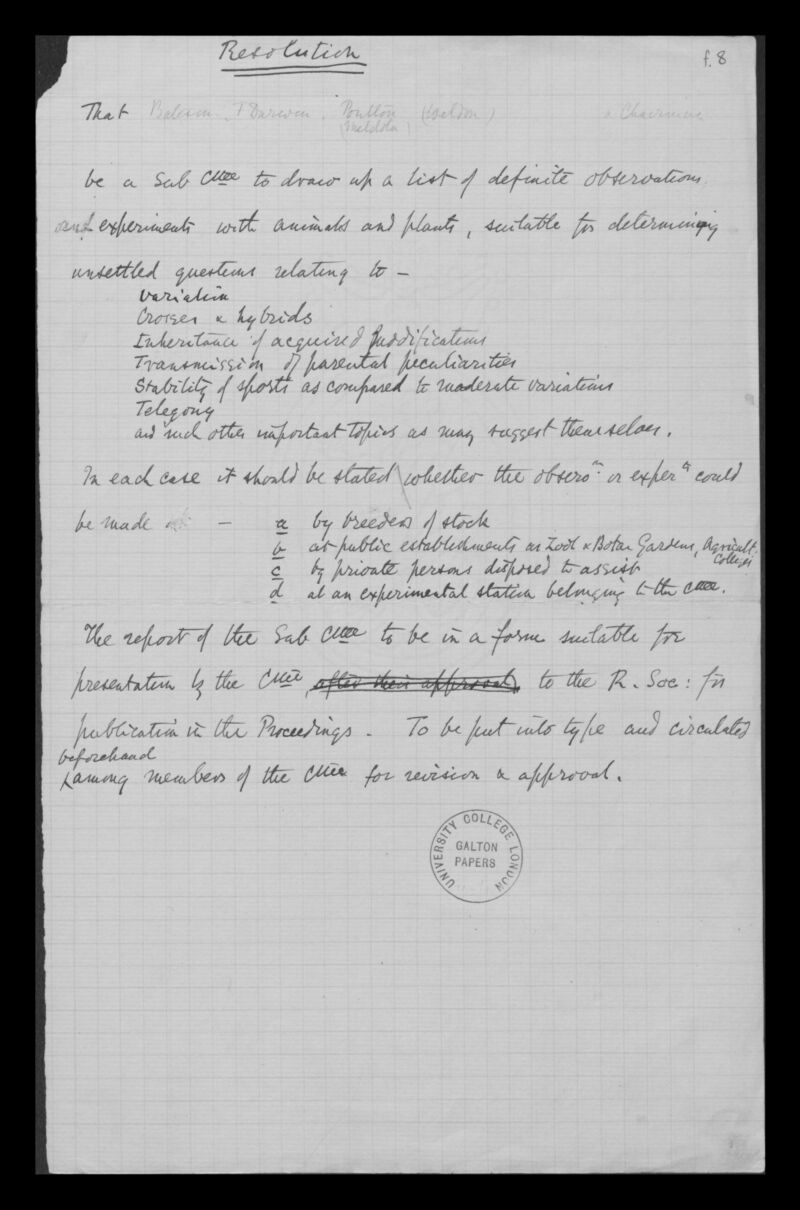 Resolution
f. 8
That Bateson, F Darwin, Poulton (Weldon) & Chairman
(Meldola)
be a Sub Cttee to draw up a list of definite observations
and experiments with animals and plants, suitable for determining
unsettled questions relating to –
Variation
Crosses & hybrids
Inheritance of acquired modifications
Transmission of parental peculiarities
Stability of sports as compared to moderate variations
Telegony
and such other important topics as may suggest themselves.
In each case it should be stated whether the observns. or experts could
be made –
a by breeders of stock
b at public establishments as Zool & Botan Gardens, Agricult. Colleges
c by private persons disposed to assist
d at an experimental station belonging to the Cttee.
The report of the Sub Cttee to be in a form suitable for
presentation by the Cttee, after their approval, to the R. Soc: for
publication in the Proceedings. To be put into type and circulated
beforehand
among members of the Cttee for revision & approval.
UNIVERSITY COLLEGE LONDON
GALTON
PAPERS